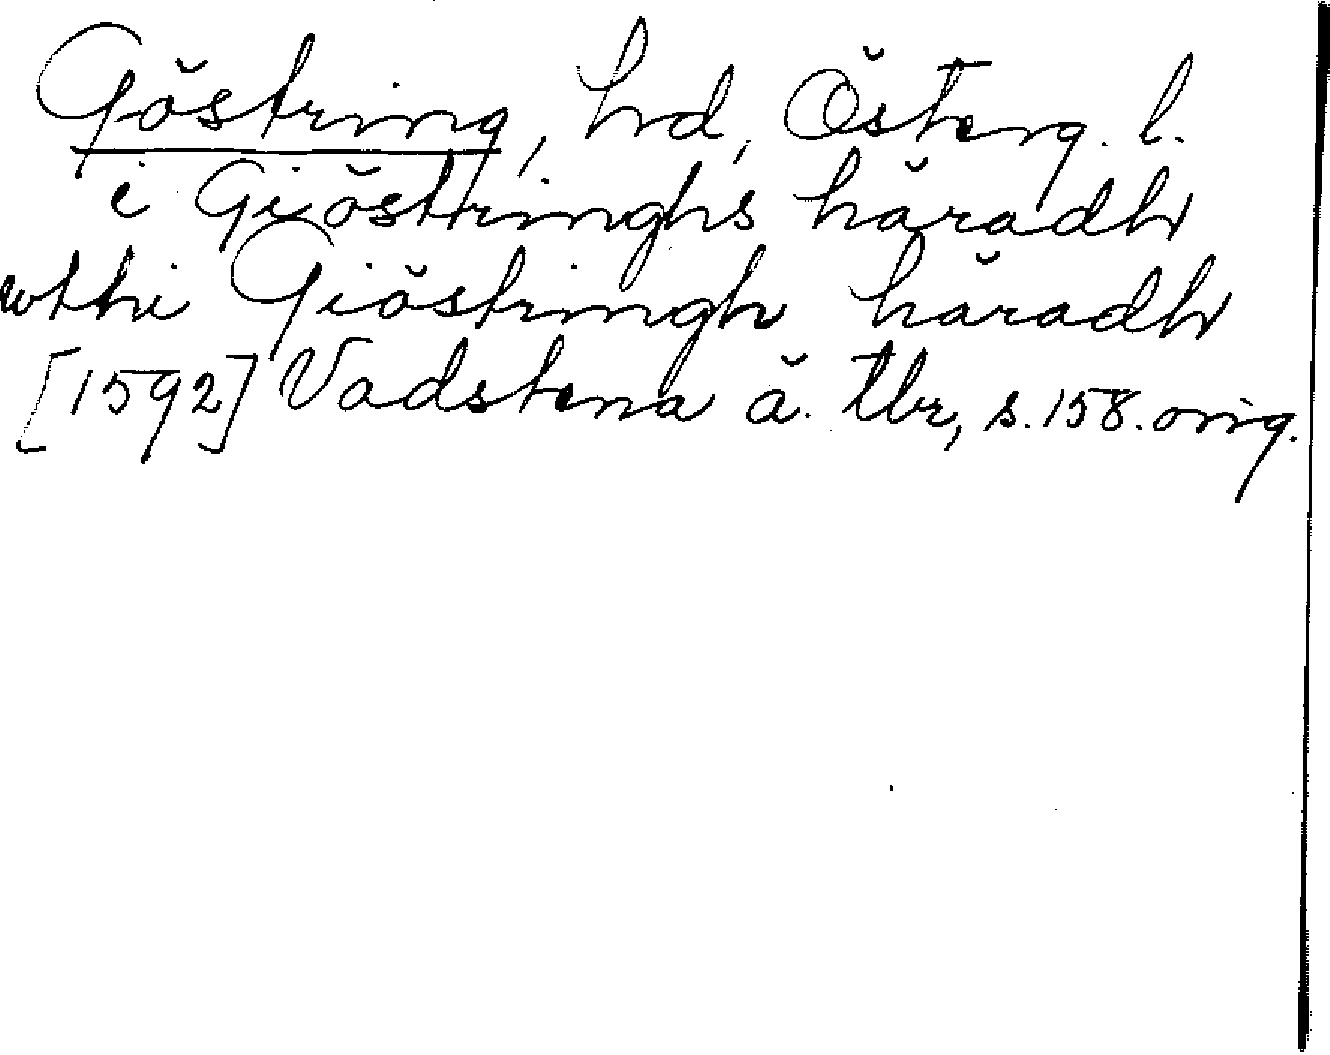 Göstring, hd, Österg. l.
i Giöstringhs häradh
wthi Giöstringh häradh
[1592] Vadstena ä. tbr, s. 158. orig.